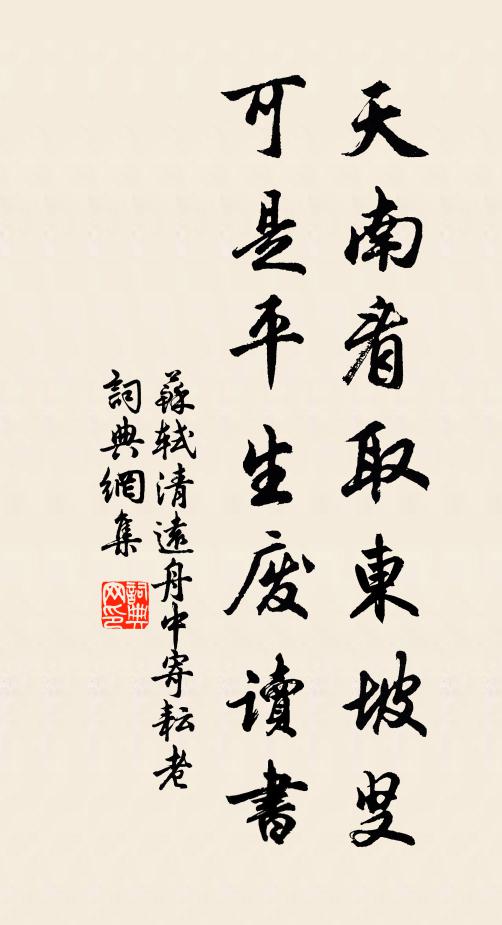 天南看取東坡叟
可是平生廢讀書
蘇軾清遠舟中寄耘老
詞典網集
詞典网印